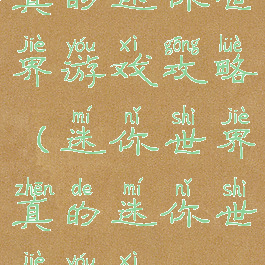 真的迷你世
jiè yóu xì gōng lüè
界游戏攻略
mí nǐ shì jiè
（迷你世界
zhēn de mí nǐ shì
真的迷你世
jiè yóu xì